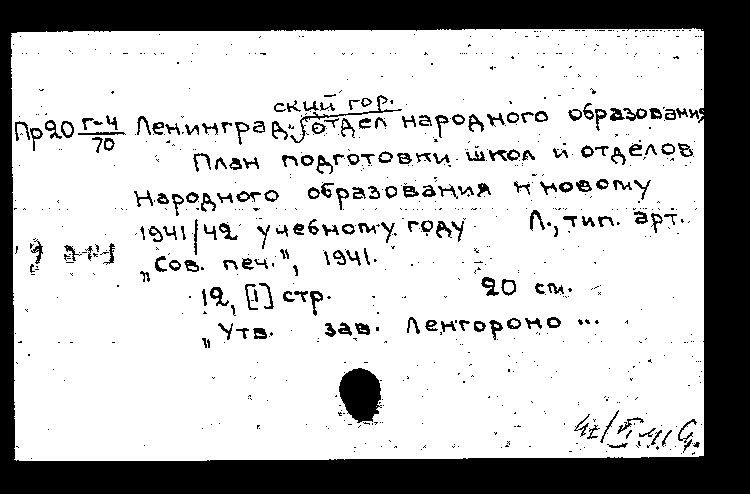 ский гор.
Пр20 Г-4/70 Ленинград. отдел народного образования
План подготовки школ и отделов
народного образования к новому
1941/42 учебному году Л., тип. арт.
„Сов. печ.", 1941.
12, [1] стр. 20 см.
„Утв. зав. Ленгороно ...